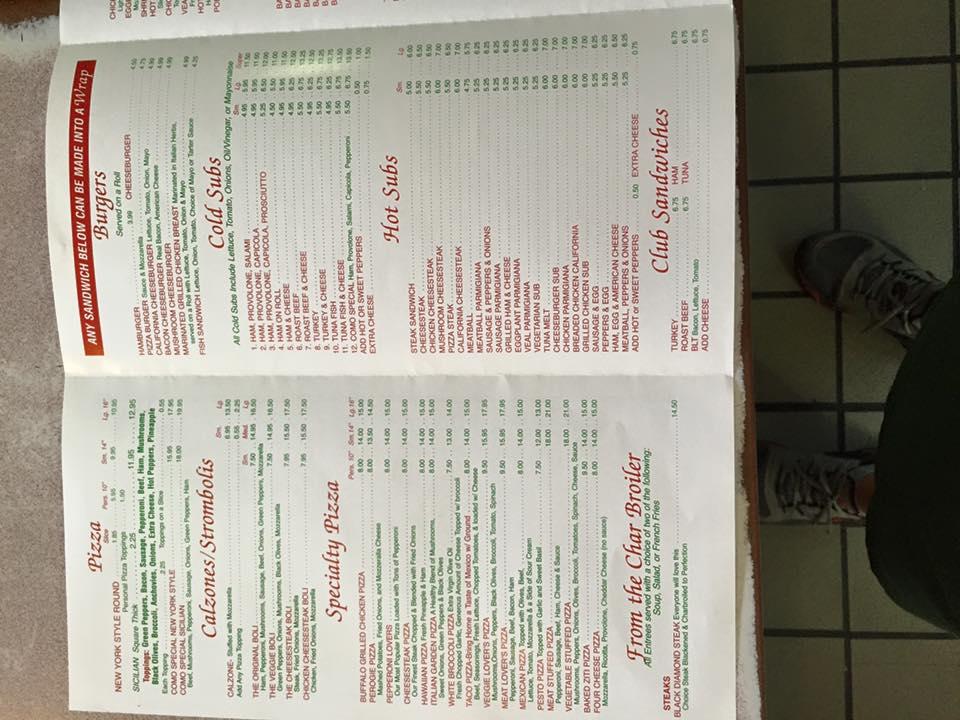 Pizza
Slice Pers. 10" Sm. 14" Lg. 16"
NEW YORK STYLE ROUND 1.85 5.95 9.95 10.95
Personal Pizza Toppings 1.50
SICILIAN Square Thick 2.25 11.95 12.95
Toppings: Green Peppers, Bacon, Sausage, Pepperoni, Beef, Ham, Mushrooms,
Black Olives, Broccoli, Anchovies, Onions, Extra Cheese, Hot Peppers, Pineapple
Each Topping 2.25 Toppings on a Slice 0.55
COMO SPECIAL NEW YORK STYLE 15.95 17.95
COMO SPECIAL SICILIAN 18.00 19.95
Beef, Mushrooms, Peppers, Sausage, Onions, Green Peppers, Ham
Calzones/Strombolis
Sm. Lg
CALZONE- Stuffed with Mozzarella 6.95 13.50
Add Any Pizza Topping 0.55 2.25
Sm Med. Lg
THE ORIGINAL BOLI 7.50 14.95 16.50
Ham, Pepperoni, Mushrooms, Sausage, Beef, Onions, Green Peppers, Mozzarella
THE VEGGIE BOLI 7.50 14.95 16.50
Green Peppers, Onions, Mushrooms, Black Olives, Mozzarella
THE CHEESESTEAK BOLI 7.95 15.50 17.50
Steak, Fried Onions, Mozzarella
CHICKEN CHEESESTEAK BOLI 7.95 15.50 17.50
Chicken, Fried Onions, Mozzarella
Specialty Pizza
Pers. 10" Sm.14" Lg.16"
BUFFALO GRILLED CHICKEN PIZZA 8.00 14.00 15.00
PEROGIE PIZZA 8.00 13.50 14.50
Mashed Potatoes, Fried Onions, and Mozzarella Cheese
PEPPERONI LOVERS 8.00 14.00 15.00
Our Most Popular Pizza Loaded with Tons of Pepperoni
CHEESESTEAK PIZZA 8.00 14.00 15.00
Our Finest Steak Chopped & Blended with Fried Onions
HAWAIIAN PIZZA Fresh Pineapple & Ham 8.00 14.00 15.00
ITALIAN GARDEN PIZZA A Healthy Blend of Mushrooms, 8.00 14.00 15.00
Sweet Onions, Green Peppers & Black Olives
WHITE BROCCOLI PIZZA Extra Virgin Olive Oil 7.50 13.00 14.00
Fresh Chopped Garlic, Generous Amount of Cheese Topped w/ broccoli
TACO PIZZA-Bring Home a Taste of Mexico w/ Ground 8.00 14.00 15.00
Beef, Seasonings, Fresh Lettuce, Chopped Tomatoes, & loaded w/ Cheese
VEGGIE LOVER'S PIZZA 9.50 15.95 17.95
Mushrooms,Onions, Peppers, Black Olives, Broccoli, Tomato, Spinach
MEAT LOVER'S PIZZA 9.50 15.95 17.95
Pepperoni, Sausage, Beef, Bacon, Ham
MEXICAN PIZZA Topped with Onions, Beef, 8.00 14.00 15.00
Lettuce, Tomato, Mozzarella & a Side of Sour Cream
PESTO PIZZA Topped with Garlic and Sweet Basil 7.50 12.00 13.00
MEAT STUFFED PIZZA 18.00 21.00
Pepperoni, Sausage, Beef, Ham, Cheese & Sauce
VEGETABLE STUFFED PIZZA 18.00 21.00
Mushrooms, Peppers, Onions, Black Olives, Broccoli, Tomatoes, Spinach, Cheese, Sauce
BAKED ZITI PIZZA 9.50 14.00 15.00
FOUR CHEESE PIZZA 8.00 14.00 15.00
Mozzarella, Ricotta, Provolone, Cheddar Cheese (no sauce)
From the Char Broiler
All Entrees served with a choice of two of the following:
Soup, Salad, or French Fries
STEAKS
BLACK DIAMOND STEAK Everyone will love this 14.50
Choice Steak Blackened & Charbroiled to Perfection
ANY SANDWICH BELOW CAN BE MADE INTO A Wrap
Burgers
Served on a Roll
HAMBURGER 3.99 CHEESEBURGER 4.50
PIZZA BURGER Sauce & Mozzarella 4.75
CALIFORNIA CHEESEBURGER Lettuce, Tomato, Onion, Mayo 4.99
BACON CHEESEBURGER Real Bacon, American Cheese 4.99
MUSHROOM CHEESEBURGER 4.99
MARINATED GRILLED CHICKEN BREAST Marinated in Italian Herbs,
served on a Roll with Lettuce, Tomato, Onion & Mayo 4.99
FISH SANDWICH Lettuce, Onion, Tomato, Choice of Mayo or Tarter Sauce 4.25
Cold Subs
All Cold Subs Include Lettuce, Tomato, Onions, Oil/Vinegar, or Mayonnaise
Sm Lg. Super
1. HAM, PROVOLONE, SALAMI 4.95 5.95 11.50
2. HAM, PROVOLONE, CAPICOLA 4.95 5.95 11.00
3. HAM, PROVOLONE, CAPICOLA, PROSCIUTTO 5.25 6.25 12.00
4. BLT ON ROLL
5. HAM & CHEESE 4.95 5.95
6. ROAST BEEF 4.95 6.25
7. ROAST BEEF & CHEESE 5.25 6.75 13.25
8. TURKEY 4.95 6.25 12.50
9. TURKEY & CHEESE 5.25 6.75 13.25
10. TUNA FISH 4.95 6.25
11. TUNA FISH & CHEESE 5.50 6.75
12. COMO SPECIAL Ham, Provolone, Salami, Capicola, Pepperoni 5.50 6.75 13.50
ADD HOT OR SWEET PEPPERS 0.50 1.00
EXTRA CHEESE 0.75 1.50
Hot Subs
Sm Lg
STEAK SANDWICH 5.00 6.00
CHEESESTEAK 5.50 6.50
CHICKEN CHEESESTEAK 5.50 6.50
MUSHROOM CHEESESTEAK 6.00 7.00
PIZZA STEAK 5.50 6.50
CALIFORNIA CHEESESTEAK 6.00 7.00
MEATBALL 4.75 5.75
MEATBALL PARMIGIANA 5.25 6.25
SAUSAGE & PEPPERS & ONIONS 5.25 6.25
SAUSAGE PARMIGIANA 5.25 6.25
GRILLED HAM & CHEESE 5.25 6.25
EGGPLANT PARMIGIANA 5.25 6.25
VEAL PARMIGIANA 5.25 6.25
VEGETARIAN SUB 5.25 6.25
TUNA MELT 6.00 7.00
CHEESEBURGER SUB 6.00 7.00
CHICKEN PARMIGIANA 6.00 7.00
BREADED CHICKEN CALIFORNIA 6.00 7.00
GRILLED CHICKEN SUB 5.25 6.25
SAUSAGE & EGG 5.25 6.25
PEPPERS & EGG 5.25 6.25
HAM, EGG & AMERICAN CHEESE 5.50 6.50
MEATBALL, PEPPERS & ONIONS 5.25 6.25
ADD HOT or SWEET PEPPERS 0.50 EXTRA CHEESE 0.75
Club Sandwiches
TURKEY 6.75 HAM 6.75
ROAST BEEF 6.75 TUNA 6.75
BLT Bacon, Lettuce, Tomato 6.75
ADD CHEESE 0.75